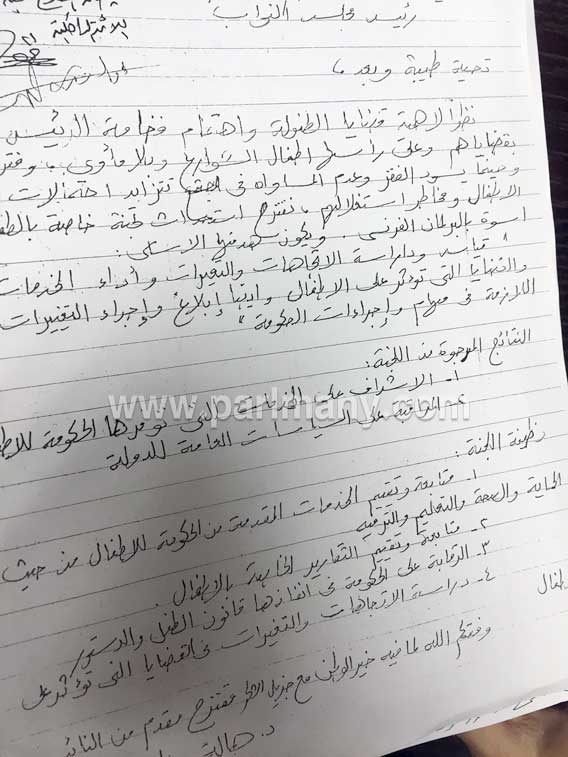 رئيس مجلس النواب
تحية طيبة وبعد،
نظراً لأهمية قضايا الطفولة واهتمام فخامة الرئيس
بقضاياهم وعلى رأسها أطفال الشوارع وبلا مأوى
وحينما يسود الفقر وعدم المساواه في تتزايد احتمالات
الأطفال ومخاطر استغلالهم، نقترح استحداث لجنة خاصة بالطف
أسوة بالبرلمان الفرنسى. ويكون هدفها الأساسى:
" ودراسة الاتجاهات والتغيرات وأداء الخدمات
والقضايا التى تؤثر على الأطفال وأيضا إبلاغ وإجراء التغييرات
اللازمة في مهام وإجراءات الحكومة"
النتائج المرجوة من اللجنة:
١- الاشراف على الخدمات التى توفرها الحكومة للأط
٢- على السياسات العامة للدولة
www.parlmany.com
وظيفة اللجنة:
١. متابعة وتقييم الخدمات المقدمة من الحكومة للأطفال من حيث
الحماية والصحة والتعليم والترفيه
٢- متابعة وتقييم التقارير الخاصة بالأطفال.
٣- الرقابة على الحكومة في انفاذها قانون الطفل والدستور
٤- دراسة الاتجاهات والتغيرات في القضايا التى تؤثر على
طفال
وفقكم الله لما فيه خير الوطن مع جزيل الشكر مقترح مقدم من النائ
د. هالة